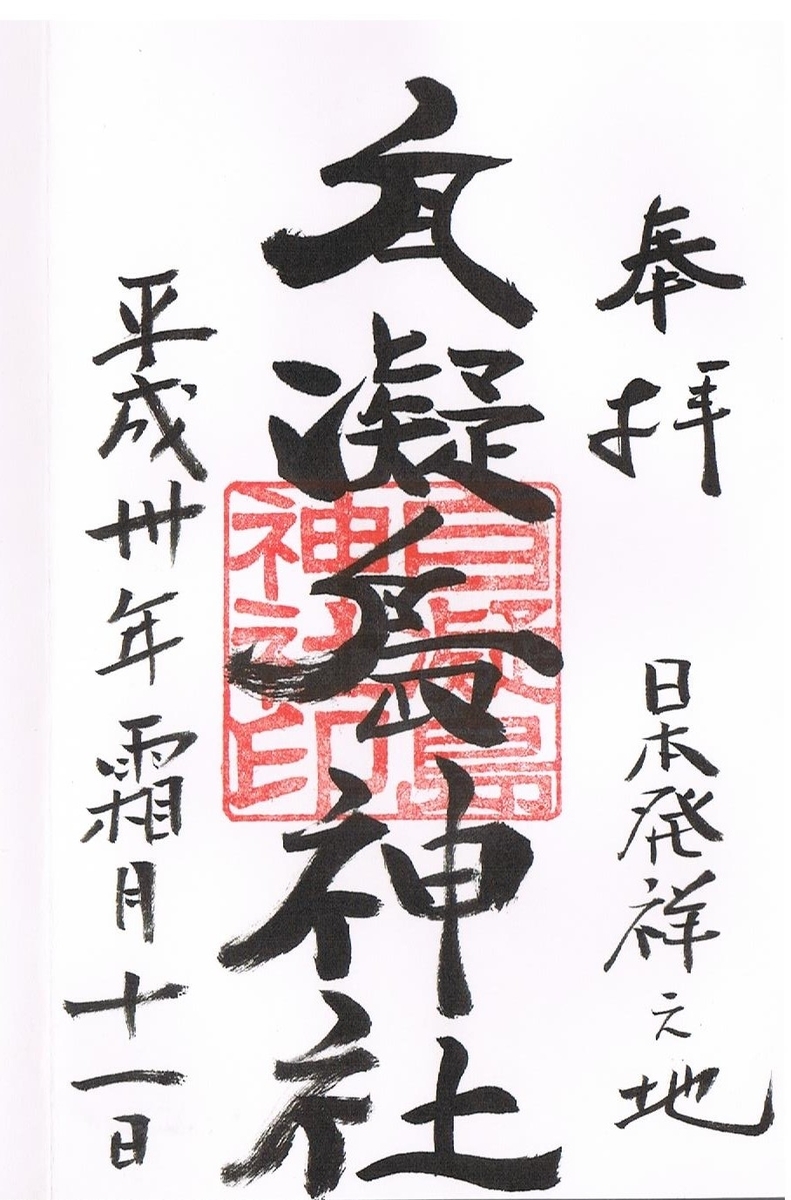 奉拝
日本発祥之地
自凝島神社
自凝島
神社印
平成卅年霜月十一日